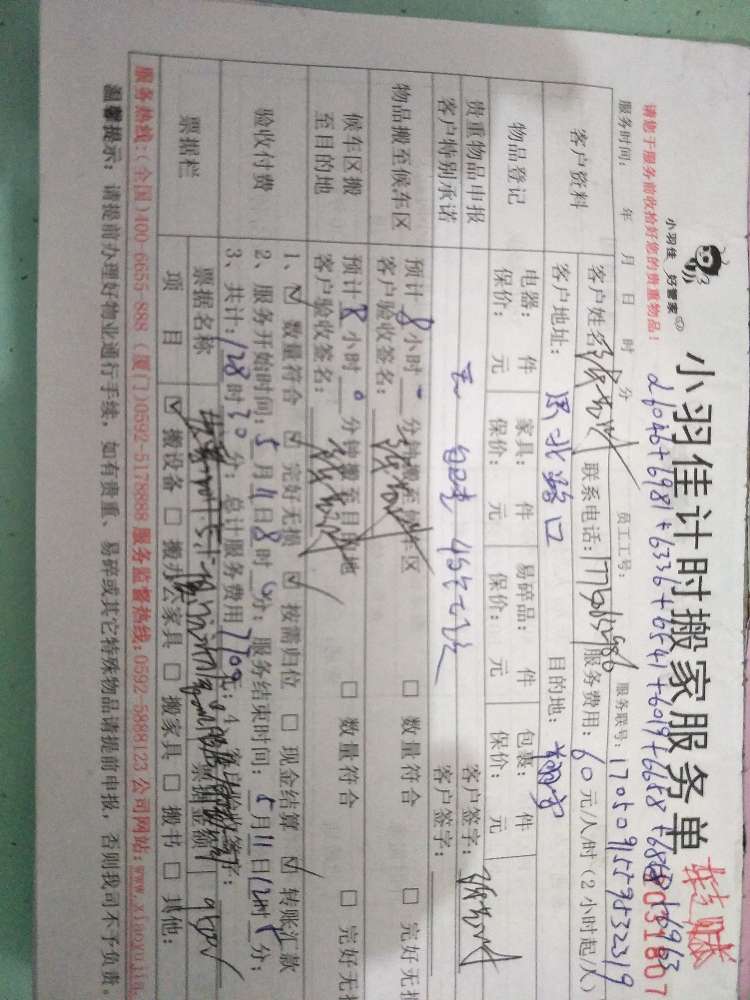 小羽佳 好管家
小羽佳计时搬家服务单
转账
请您于服务前收拾好您的贵重物品！
26046+6981+6336+6541+6019+6658+6868+6963
0031807
服务时间： 年 月 日 时 分 员工工号： 服务联号：17050915595832319
客户资料
客户姓名 联系电话： 服务费用：60元/人/时（2小时起/人）
客户地址：思北路口 目的地：
物品登记
电器： 件 家具： 件 易碎品： 件 包裹： 件
保价： 元 保价： 元 保价： 元 保价： 元
贵重物品申报 无 客户签字：
客户特别承诺 客户签字：
物品搬至候车区
预计8小时 分钟搬至候车区 □ 数量符合 □ 完好无损
客户验收签名：
候车区搬至目的地
预计8小时0分钟搬至目的地 □ 数量符合 □ 完好无损
客户验收签名：
验收付费
1、☑ 数量符合 ☑ 完好无损 ☑ 按需归位 □ 现金结算 ☑ 转账汇款
2、服务开始时间：5月11日8时0分；服务结束时间：5月11日12时 分；
3、共计：128时30分；总计服务费用7700元；4、
票据栏
票据名称 票据金额
项目 ☑ 搬设备 □ 搬办公家具 □ 搬家具 □ 搬书 □ 其他：
服务热线：(全国)400-6655 888 (厦门)0592-5178888 服务监督热线：0592-5888123 公司网站：www.xiaoyujia.
温馨提示：请提前办理好物业通行手续，如有贵重、易碎或其它特殊物品请提前申报，否则我司不予负责。